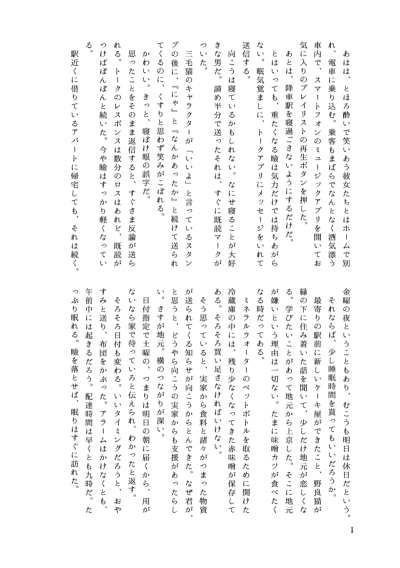 あはは、とほろ酔いで笑いあう彼女たちとはホームで別
れ、電車に乗り込む。乗客もまばらでなんとなく酒気漂う
車内で、スマートフォンのミュージックアプリを開いてお
気に入りのプレイリストの再生ボタンを押した。
あとは、降車駅を寝過ごさないようにするだけだ。
とはいっても、重たくなる瞼は気力だけでは持ちあがら
ない。眠気覚ましに、トークアプリにメッセージをいれて
送信する。
向こうは寝ているかもしれない。なにせ寝ることが大好
きな男だ。諦め半分で送ったそれは、すぐに既読マークが
ついた。
三毛猫のキャラクターが「いいよ」と言っているスタン
プの後に、『にゃ』と『なんかあったか』と続けて送られ
てくるのに、くすりと思わず笑みがこぼれる。
かわいい。きっと、寝ぼけ眼の誤字だ。
思ったことをそのまま返信すると、すぐさま反論が送ら
れる。トークのレスポンスは数分のロスはあれど、既読が
つけばぽんぽんと続いた。今や瞼はすっかり軽くなってい
る。
駅近くに借りているアパートに帰宅しても、それは続く。
金曜の夜ということもあり、むこうも明日は休日だという。
それならば、少し睡眠時間を貰ってもいいだろうか。
最寄りの駅前に新しいケーキ屋ができたこと、野良猫が
縁の下に住み着いた話を聞いて、少しだけ地元が恋しくな
る。学びたいことがあって地元から上京した。そこに地元
が嫌いという理由は一切ない。たまに味噌カツが食べたく
なる時だってある。
ミネラルウォーターのペットボトルを取るために開けた
冷蔵庫の中には、残り少なくなってきた赤味噌が保存して
ある。そろそろ買い足さなければいけない。
そう思っていると、実家から食料と諸々がつまった物資
が送られてくる知らせが向こうからとんできた。なぜ君が、
と思うと、どうやら向こうの実家からも支援があったらし
い。さすが地元。横のつながりが深い。
日付指定で土曜の、つまりは明日の朝に届くから、用が
ないなら家で待っていろと伝えられ、わかったと返す。
そろそろ日付も変わる。いいタイミングだろうと、おや
すみと送り、布団をかぶった。アラームはかけなくとも、
午前中には起きるだろう。配達時間は早くとも九時だ。た
っぷり眠れる。瞼を落とせば、眠りはすぐに訪れた。
1